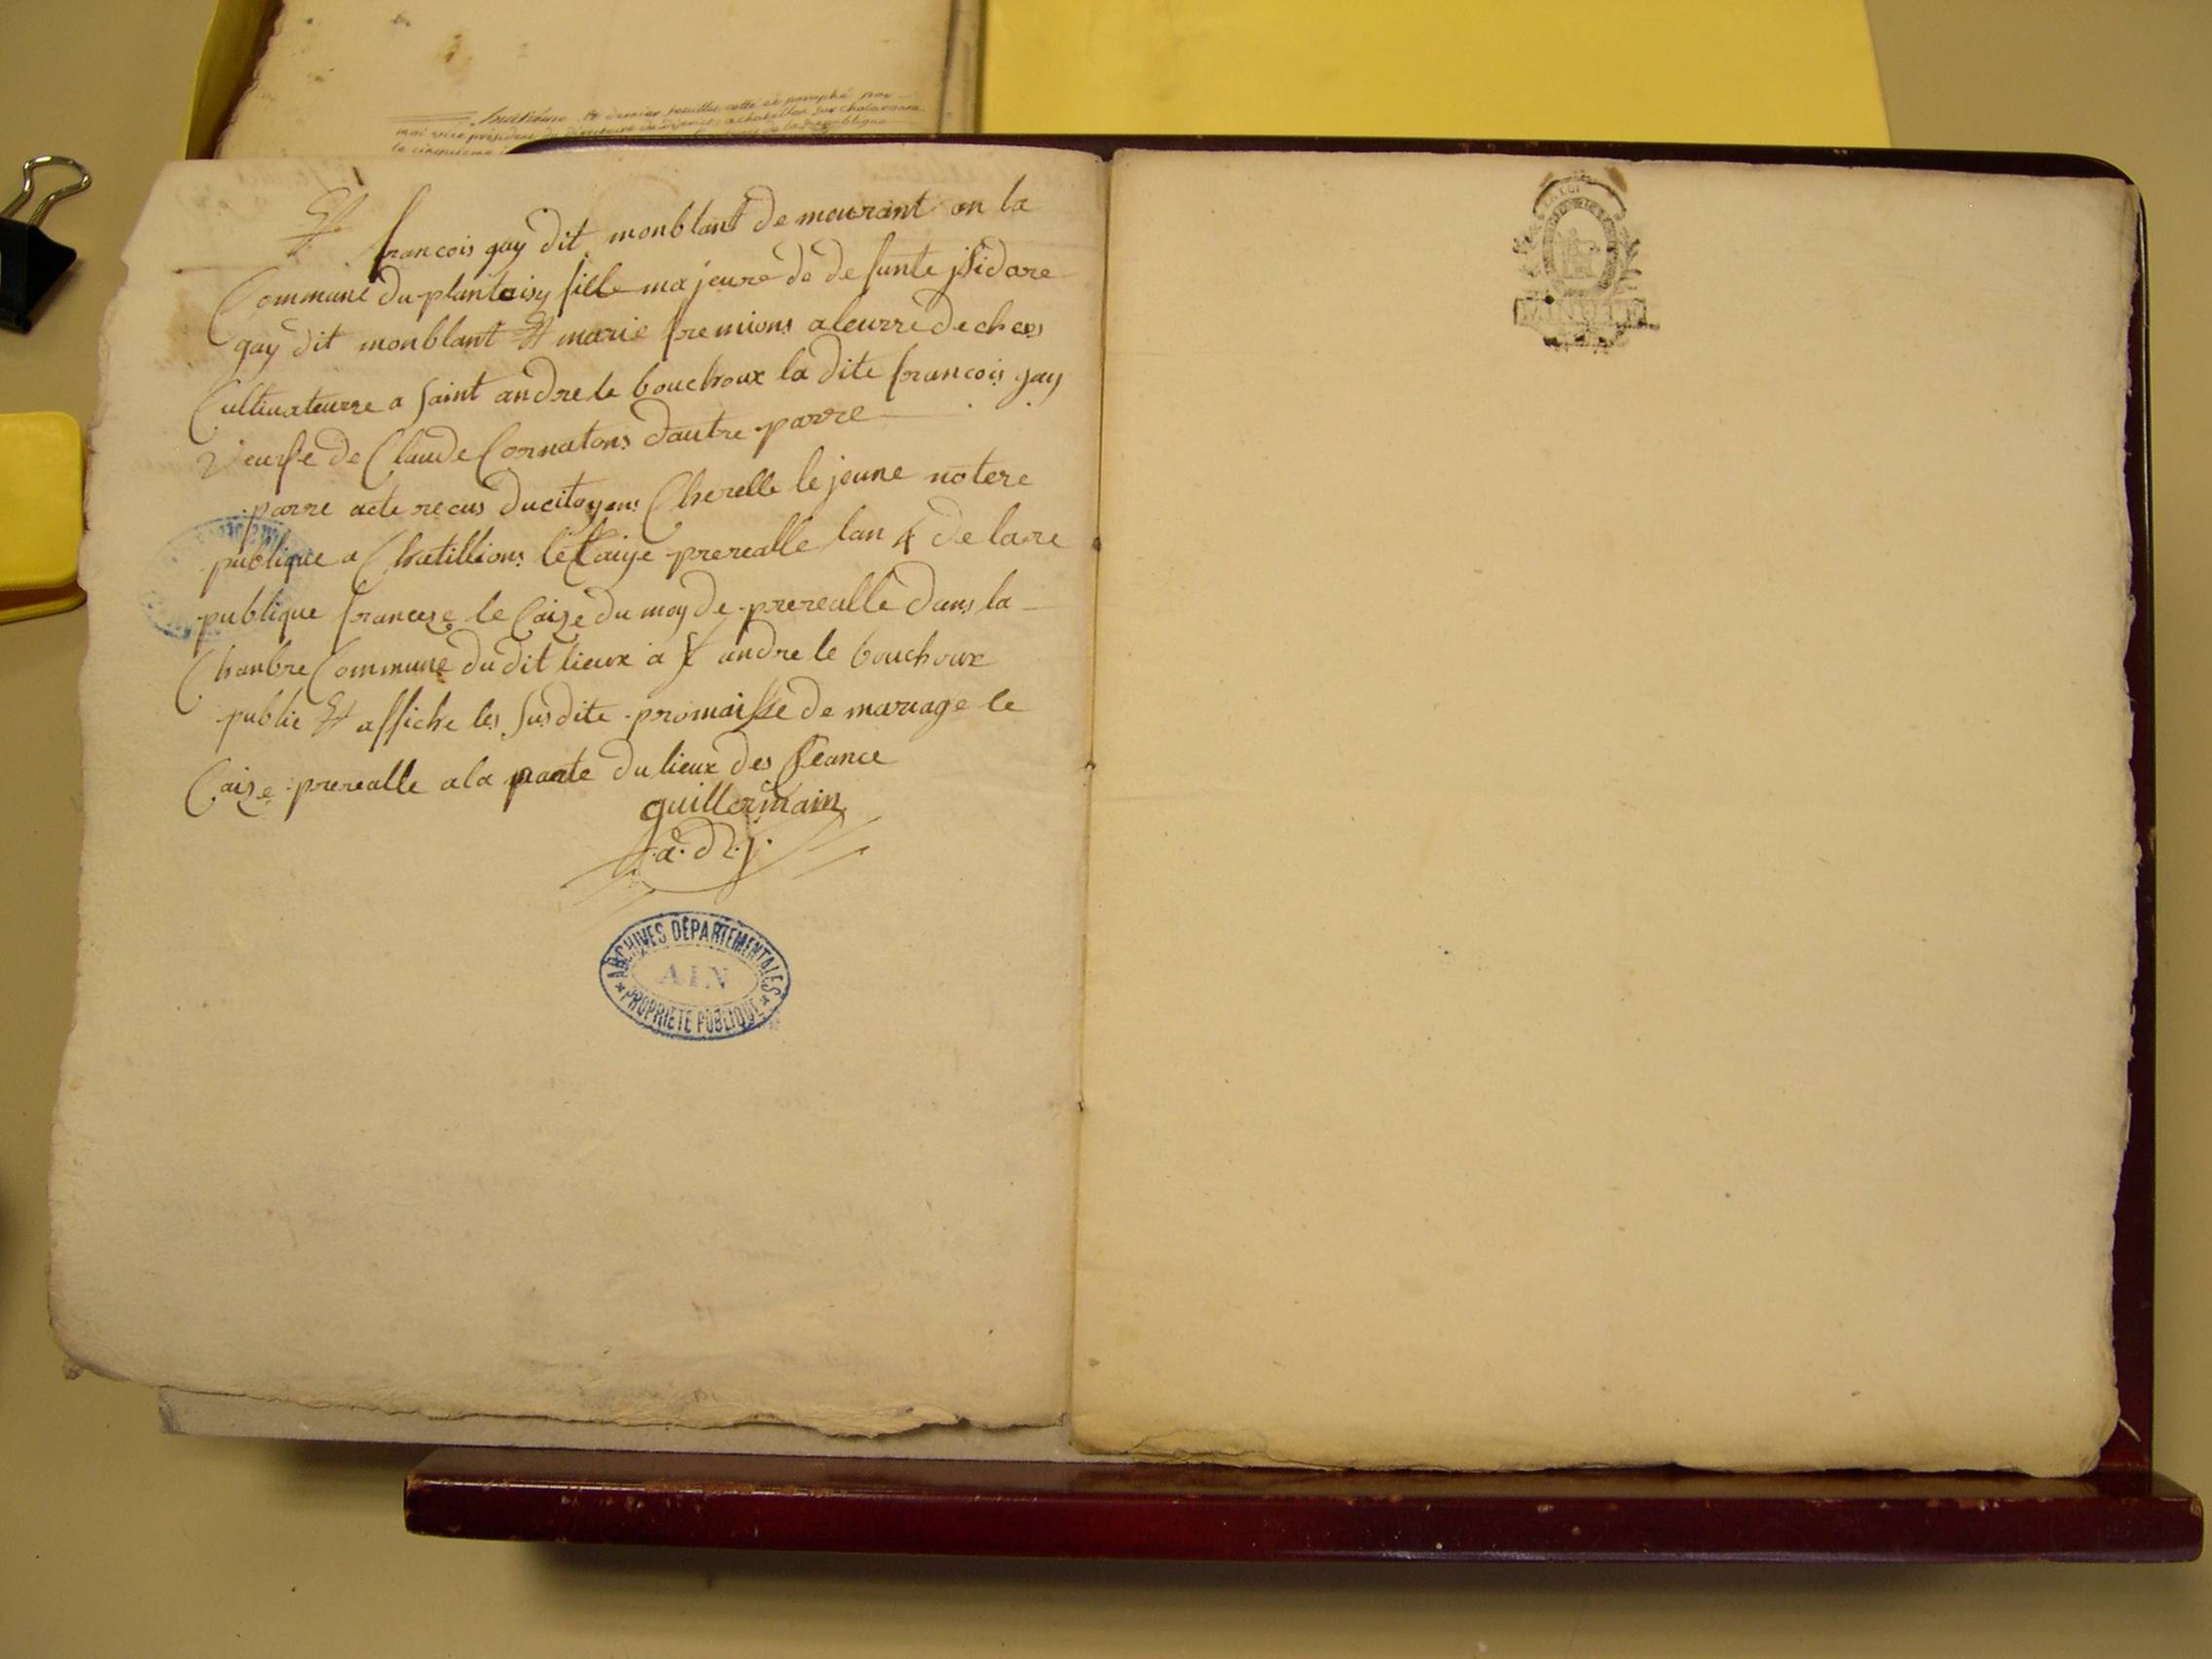 dernier feuillet cotté et paraphé par
moi vice président du directoire du district a chatillon sur chalaronne
la république
le cinquieme
Et francois gay dit monblant de meurant en la
Commune du plantaisy fille majeure de defunte jsidore
gay dit monblant Et marie fremions a leurre deches
Cultivateurre a saint andre le bouchoux la dite francois gay
veufse de Claude Cornatons dautre parre
parre acte recus du citoyens Cherelle le jeune notere
publique a Chatillions le Caize prerealle lan 4 de la re
publique franceze le Caize du moy de prerealle dans la
Chanbre Commune du dit lieux a St andre le bouchoux
publie Et affiche les susdite promaisse de mariage le
Caize prerealle a la porte du lieux des seance
guillermain
a. d j.
ARCHIVES DÉPARTEMENTALES
AIN
PROPRIÉTÉ PUBLIQUE
LA LOI
MINUTE